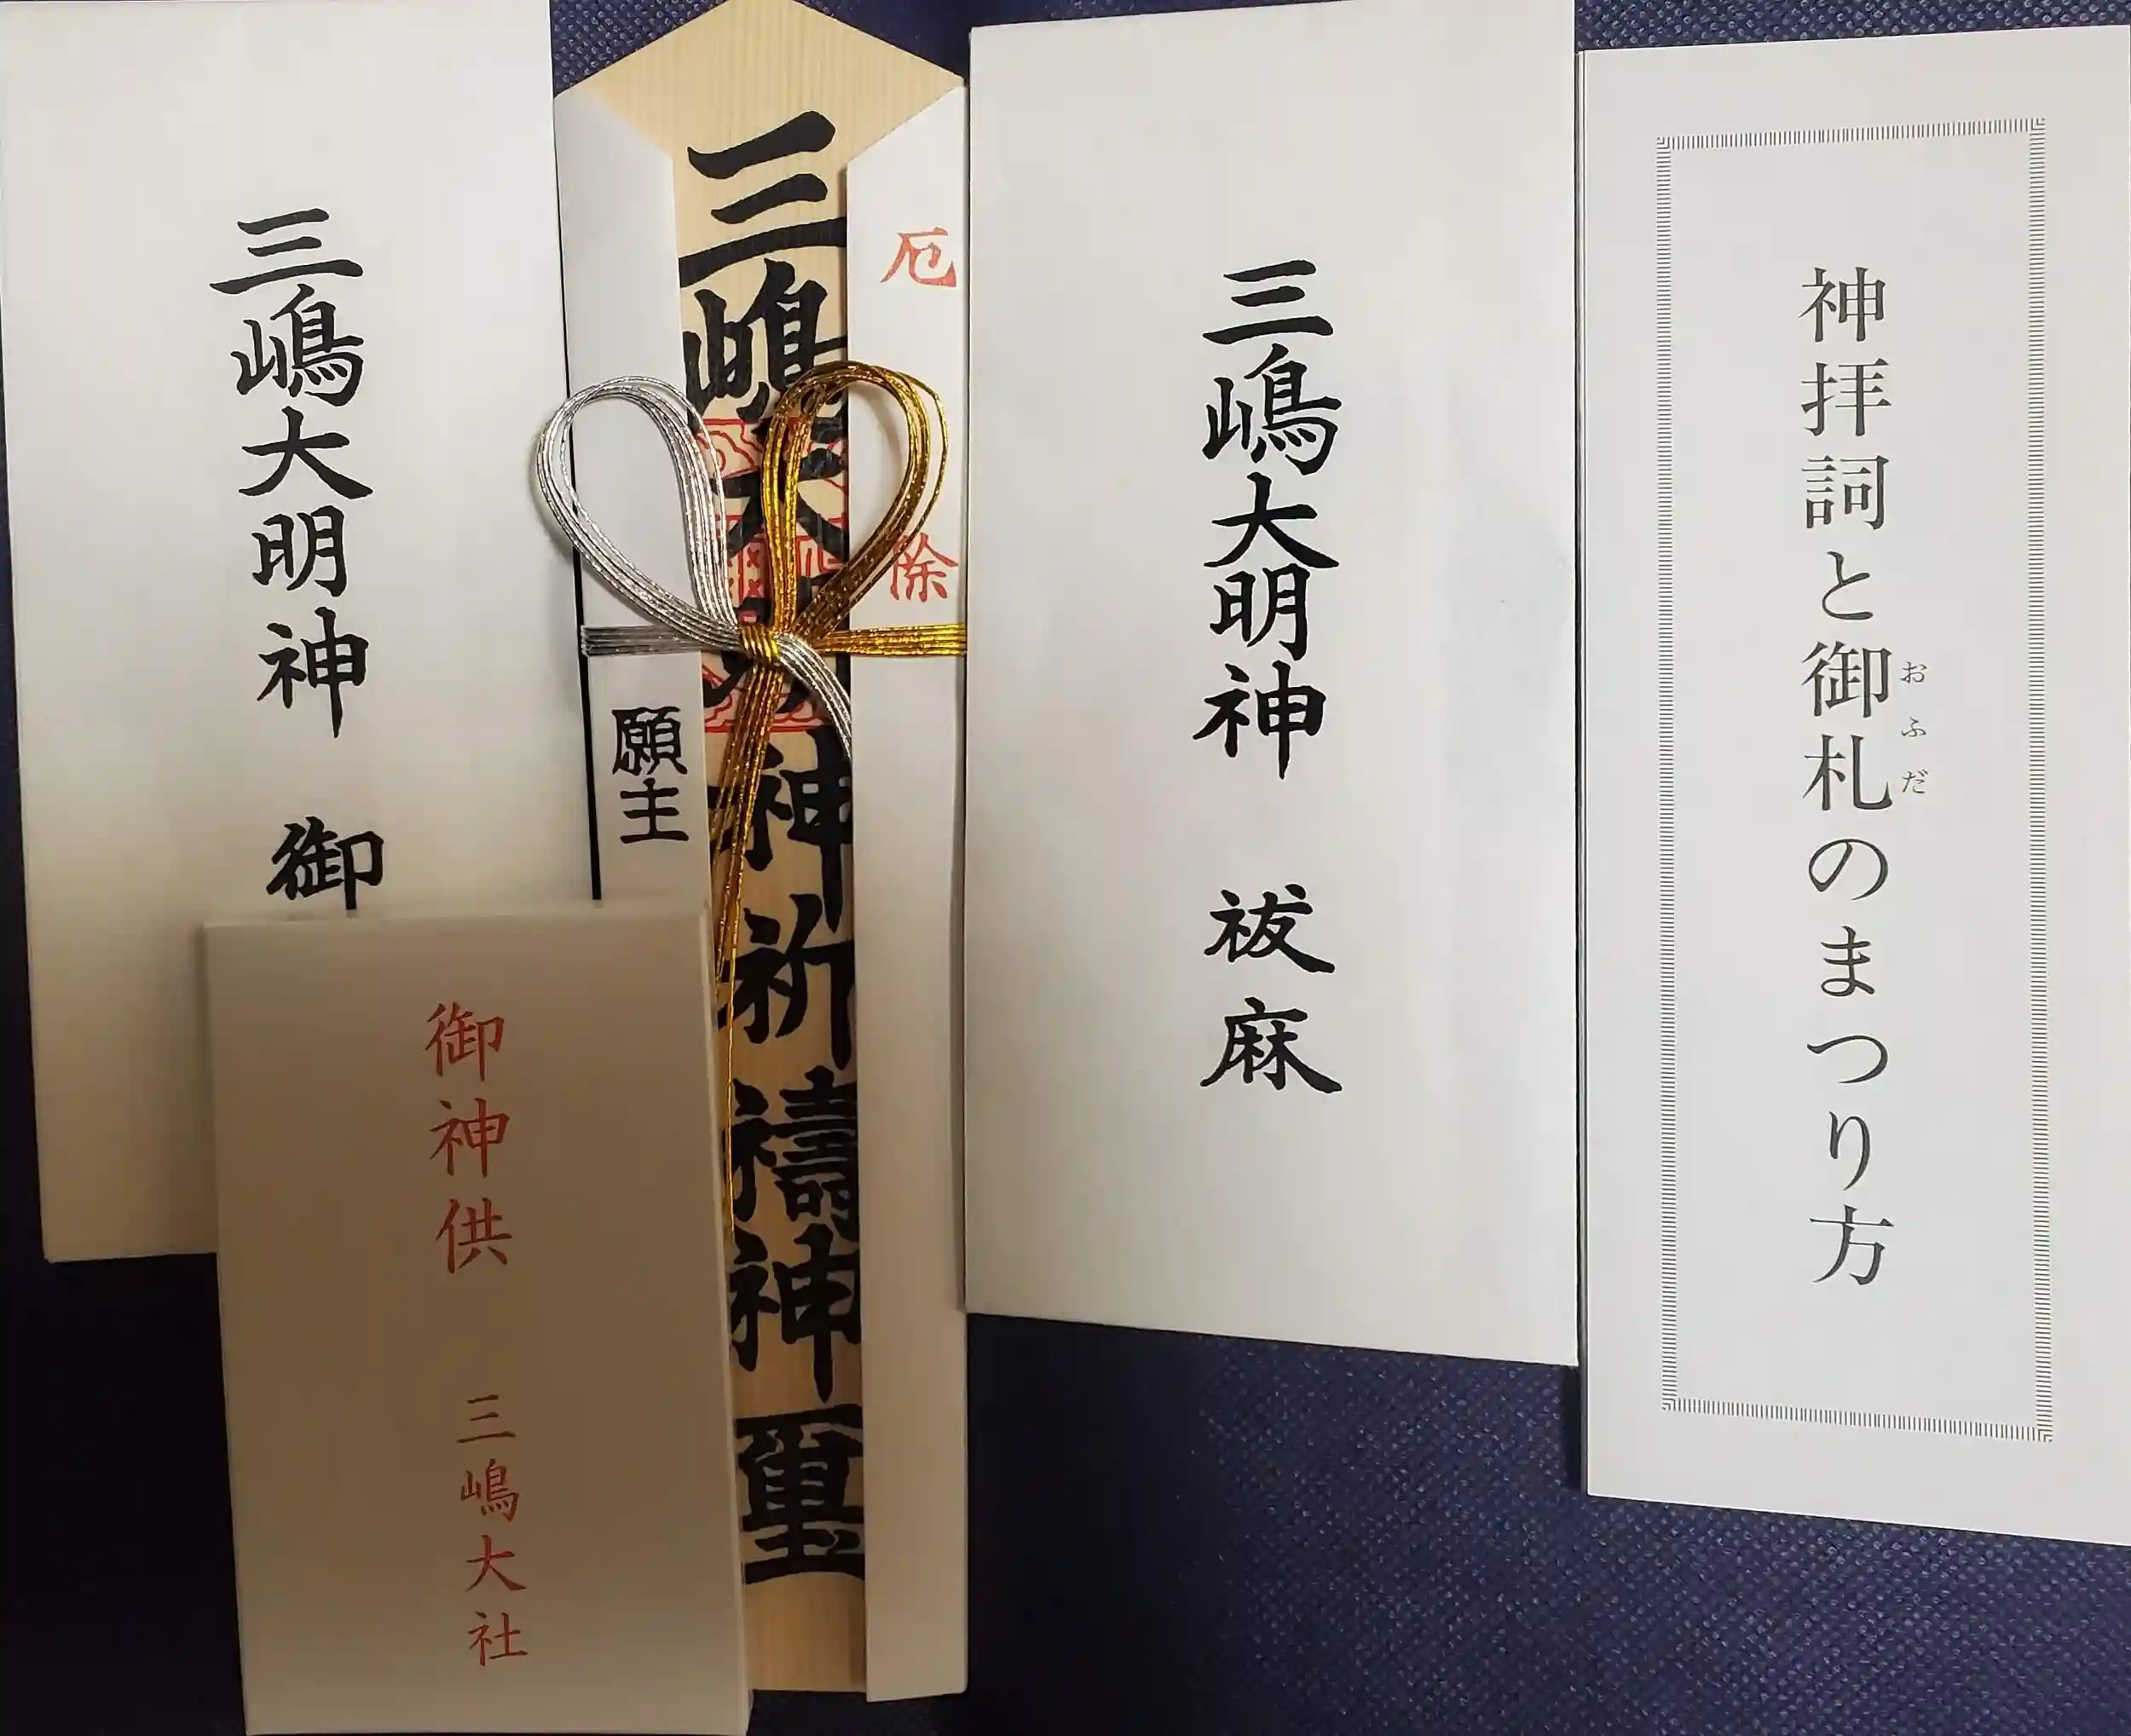 神拝詞と御札のまつり方
おふだ
三嶋大明神 祓麻
厄除
三嶋大明神祈禱神璽
願主
三嶋大明神 御
御神供 三嶋大社